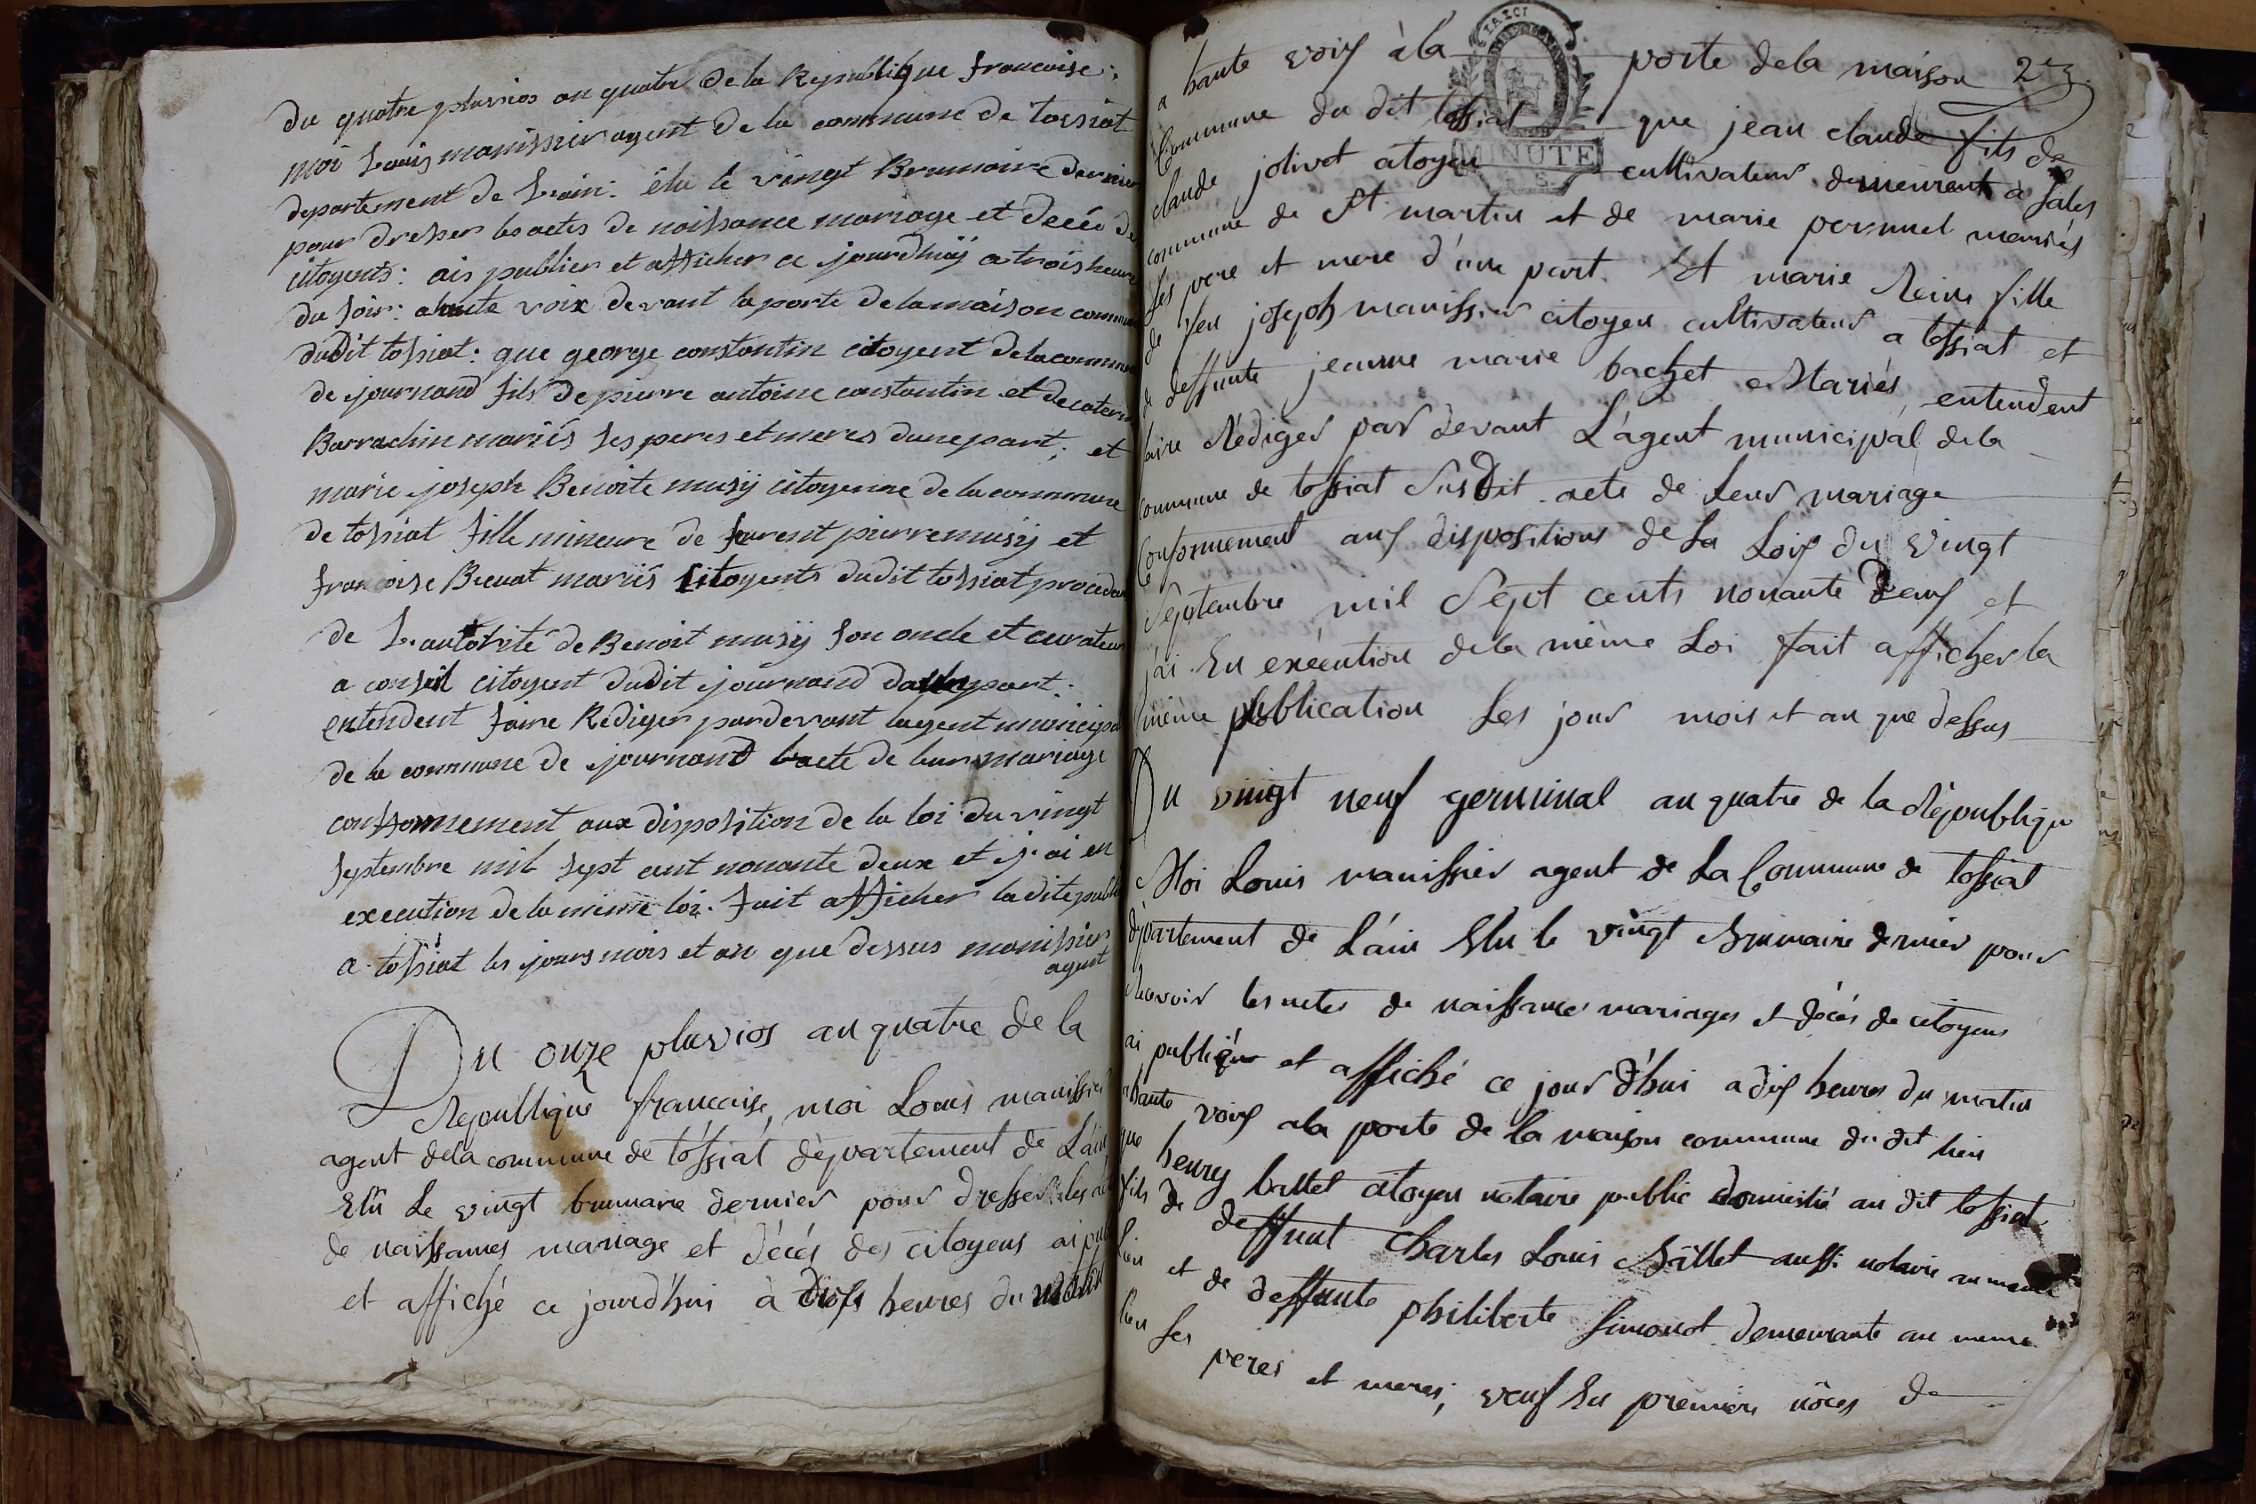 du quatre pluvios an quatre de la Republique francoise:
moi Louis manissier agent de la commune de tossiat
departement de Lain: élu le vingt Brumaire dernier
pour dresser les actes de naissance mariage et décéé de
citoyents: ais publier et afficher ce jourdhuÿ a trois heure
du soir: a haute voix devant la porte de la maison commune
dudit tossiat: que george constantin citoyent de la commune
de journand fils de pierre antoine constantin et de caterine
Barrachin mariés ses peres et meres dune part; et
marie joseph Benoite musÿ citoyenne de la commune
de tossiat fille mineure de pierre musÿ et
francoise Brevat mariés citoyents dudit tossiat procedant
de L'autorité de Benoit musÿ son oncle et curateur
a conseil citoyent dudit journand part:
entendent faire Rediger pardevant lagent municipal
de la commune de journand lacte de leur mariage
conformement aux disposition de la loi du vingt
septembre mil sept cent nonante deux et j'ai en
execution de la même loi. fait afficher ladite publi
a tossiat les jours mois et an que dessus manissier
agent
Du onze pluvios an quatre de la
Republique francaise, moi Louis manissier
agent dela commune de tossiat département de L'ain
Elû Le vingt brumaire dernier pour dresser les
de naissances mariage et décés des citoyens ai
et affiché ce jourd'hui à heures du matin
23.
a haute voix à la porte dela maison
Commune du dit tossiat que jean claude fils de
claude jolivet citoyen cultivateur demeurant à Sales
commune de St. martin et de marie perrunel mariés
ses pere et mere d'une part. Et marie Reine fille
de feu joseph manissier citoyen cultivateur a tossiat et
de deffunte jeanne marie bachet Mariés, entendent
faire Rédiger par devant L'agent municipal dela
commune de tossiat susdit acte de leur mariage
Conformement aux dispositions de La Loix du vingt
septembre mil sept cents nonante deux et
j'ai En exécution dela même Loi fait afficher la
même publication Les jour mois et an que dessus
Du vingt neuf germinal an quatre de la République
Moi Louis manissier agent de La Commune de tossiat
département de L'ain Elu le vingt Brumaire dernier pour
Recevoir les actes de naissances mariages et décés de citoyens
ai publié et affiché ce jour d'hui a dix heures du matin
a haute voix a la porte de la maison commune du dit lieu
que henry billet citoyen notaire public domicilié au dit tossiat
fils de deffunt Charles Louis Billet aussi notaire au meme
lieu et de deffunte philiberte Simonet demeurante au meme
lieu ses peres et meres, veuf En premiere nôces de
MINUTE